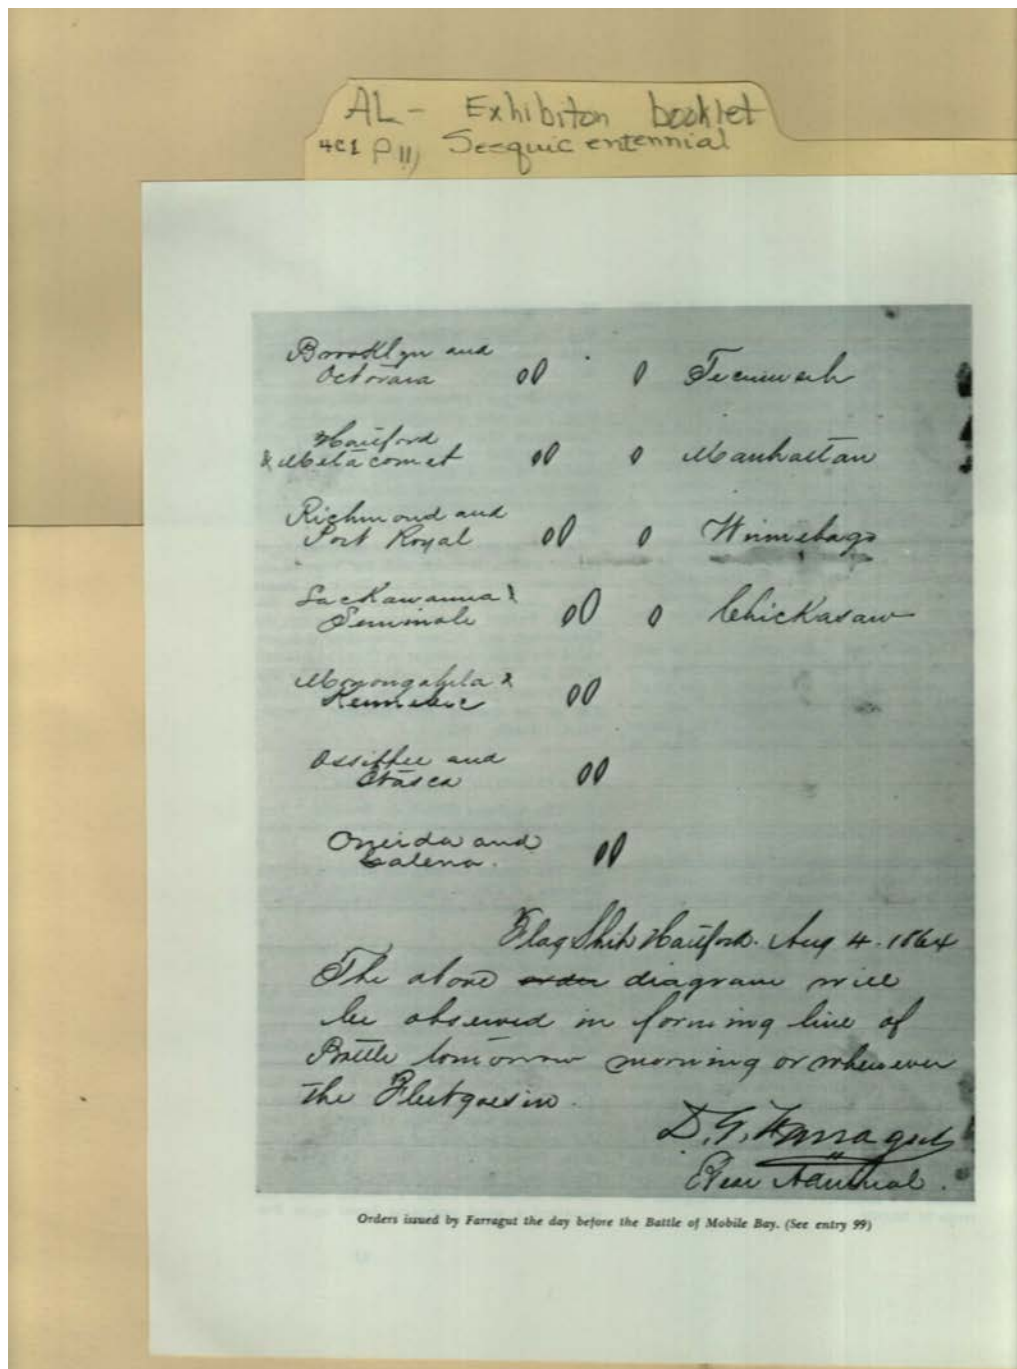 AL - Exhibiton booklet
4C1 P 11, Sesquicentennial
Brooklyn and
Octorara
Tecumseh
Hartford
& Metacomet
Manhattan
Richmond and
Port Royal
Winnebago
Lackawanna &
Seminole
Chickasaw
Monongahela &
Kennebec
Ossippee and
Itasca
Oneida and
Galena.
Flag Ship Hartford. Aug 4. 1864
The above order diagram will
be observed in forming line of
Battle tomorrow morning or whenever
the Fleet goes in.
D. G. Farragut
Rear Admiral.
Orders issued by Farragut the day before the Battle of Mobile Bay. (See entry 99)